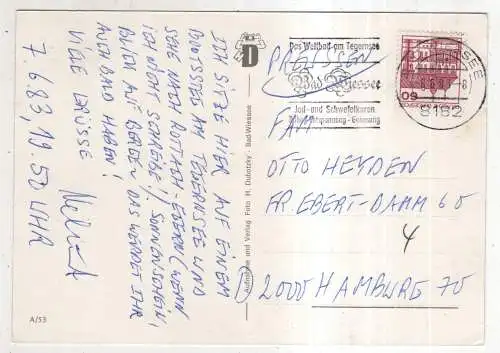 ICH SITZE HIER AUF EINEM
BOOTSSTEG AM TEGERNSEE UND
SEHE NACH ROTTACH-EGERN (WENN
ICH NICHT SCHREIBE). SONNENSCHEIN,
BLICK AUF BERGE, DAS WERDET IHR
AUCH BALD HABEN!
VIELE GRÜSSE
7.6.83, 19.50 UHR
A/53
D
Aufnahme und Verlag Fritz H. Dubotzky · Bad-Wiessee
PREUSSEN
Das Weltbad am Tegernsee
Bad Wiessee
Jod- und Schwefelkuren
8182
FAM.
OTTO HEYDEN
FR. EBERT-DAMM 60
4
2000 HAMBURG 70